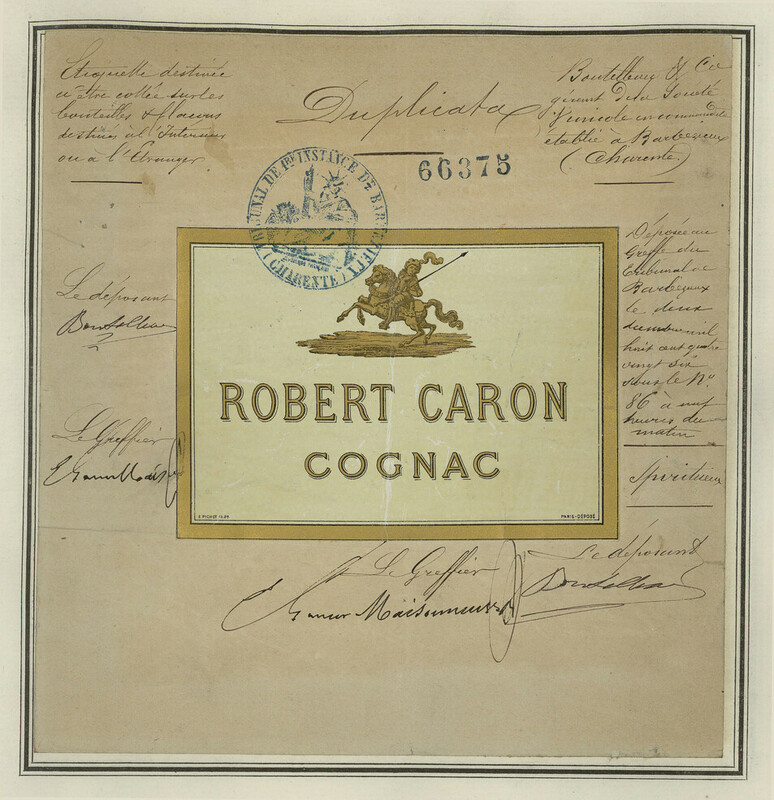 Etiquette destinée
à être collée sur les
bouteilles & flacons
destinés à l'Interieur
ou à l'Etranger.
Duplicata
66375
Boutelleau & Cie
gérant de la Société
Vinicole en commandite
établie à Barbezieux
(Charente.)
TRIBUNAL DE 1RE INSTANCE DE BARBEZIEUX
(CHARENTE)
Le déposant
Boutelleau
Le Greffier
ROBERT CARON
COGNAC
PARIS-DÉPOSÉ
Déposée au
Greffe du
tribunal de
Barbezieux
le deux
mil
huit cent quatre
vingt six
sous le No
86 à neuf
heures du
matin
Spiritueux
Le Greffier
Maisonneuve
Le déposant
Boutelleau